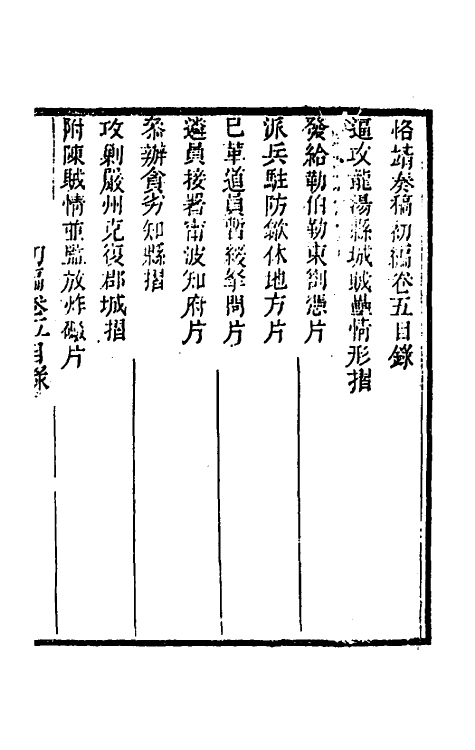 恪靖奏稿初編卷五目錄
逼攻龍湯縣城賊壘情形摺
發給勒伯勒東劄憑片
派兵駐防歙休地方片
已革道員暫緩拏問片
遴員接署甯波知府片
叅辦貪劣知縣摺
攻剿嚴州克復郡城摺
附陳賊情並監放炸礮片
初編卷五目錄